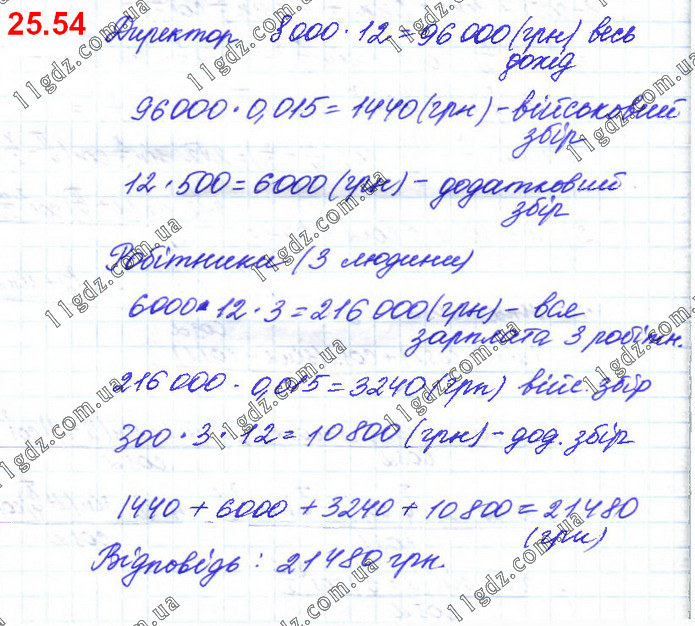 25.54
Директор 8000 · 12 = 96 000 (грн) весь
дохід
96000 · 0,015 = 1440 (грн) - військовий
збір
12 · 500 = 6000 (грн) - додатковий
збір
Робітники (3 людини)
6000 · 12 · 3 = 216 000 (грн) - вся
зарплата 3 робітн.
216 000 · 0,015 = 3240 (грн) війс. збір
300 · 3 · 12 = 10 800 (грн) - дод. збір
1440 + 6000 + 3240 + 10 800 = 21 480
(грн)
Відповідь : 21480 грн.
11gdz.com.ua